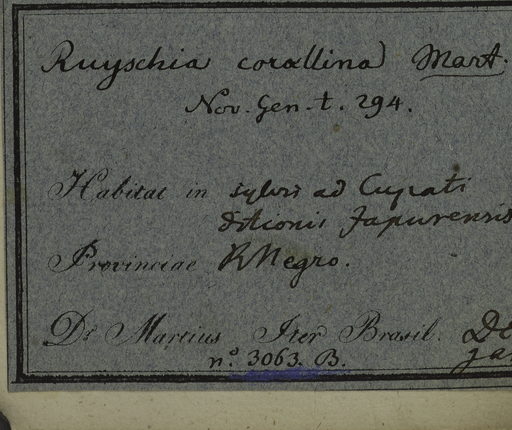 Ruyschia corallina Mart.
Nov. Gen. t. 294.
Habitat in sylvis ad Cupati
ditionis Japurensis
Provinciae RNegro.
Dr. Martius Iter Brasil.
n.o 3063. B.